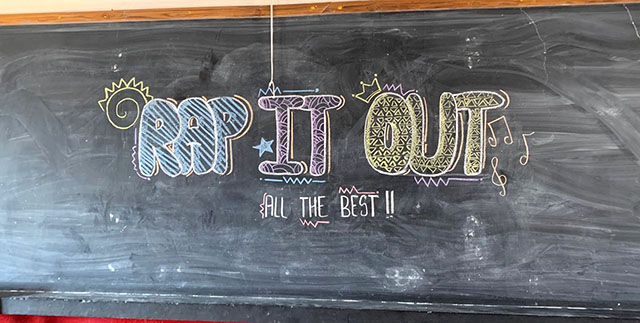 RAP IT OUT
ALL THE BEST !!